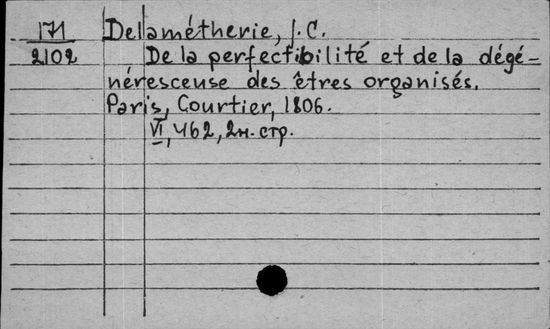 171 Delamétherie, J.C.
2102 De la perfectibilité et de la dégé-
néresceuse des êtres organisés.
Paris, Courtier, 1806.
VI, 462, 2н. стр.